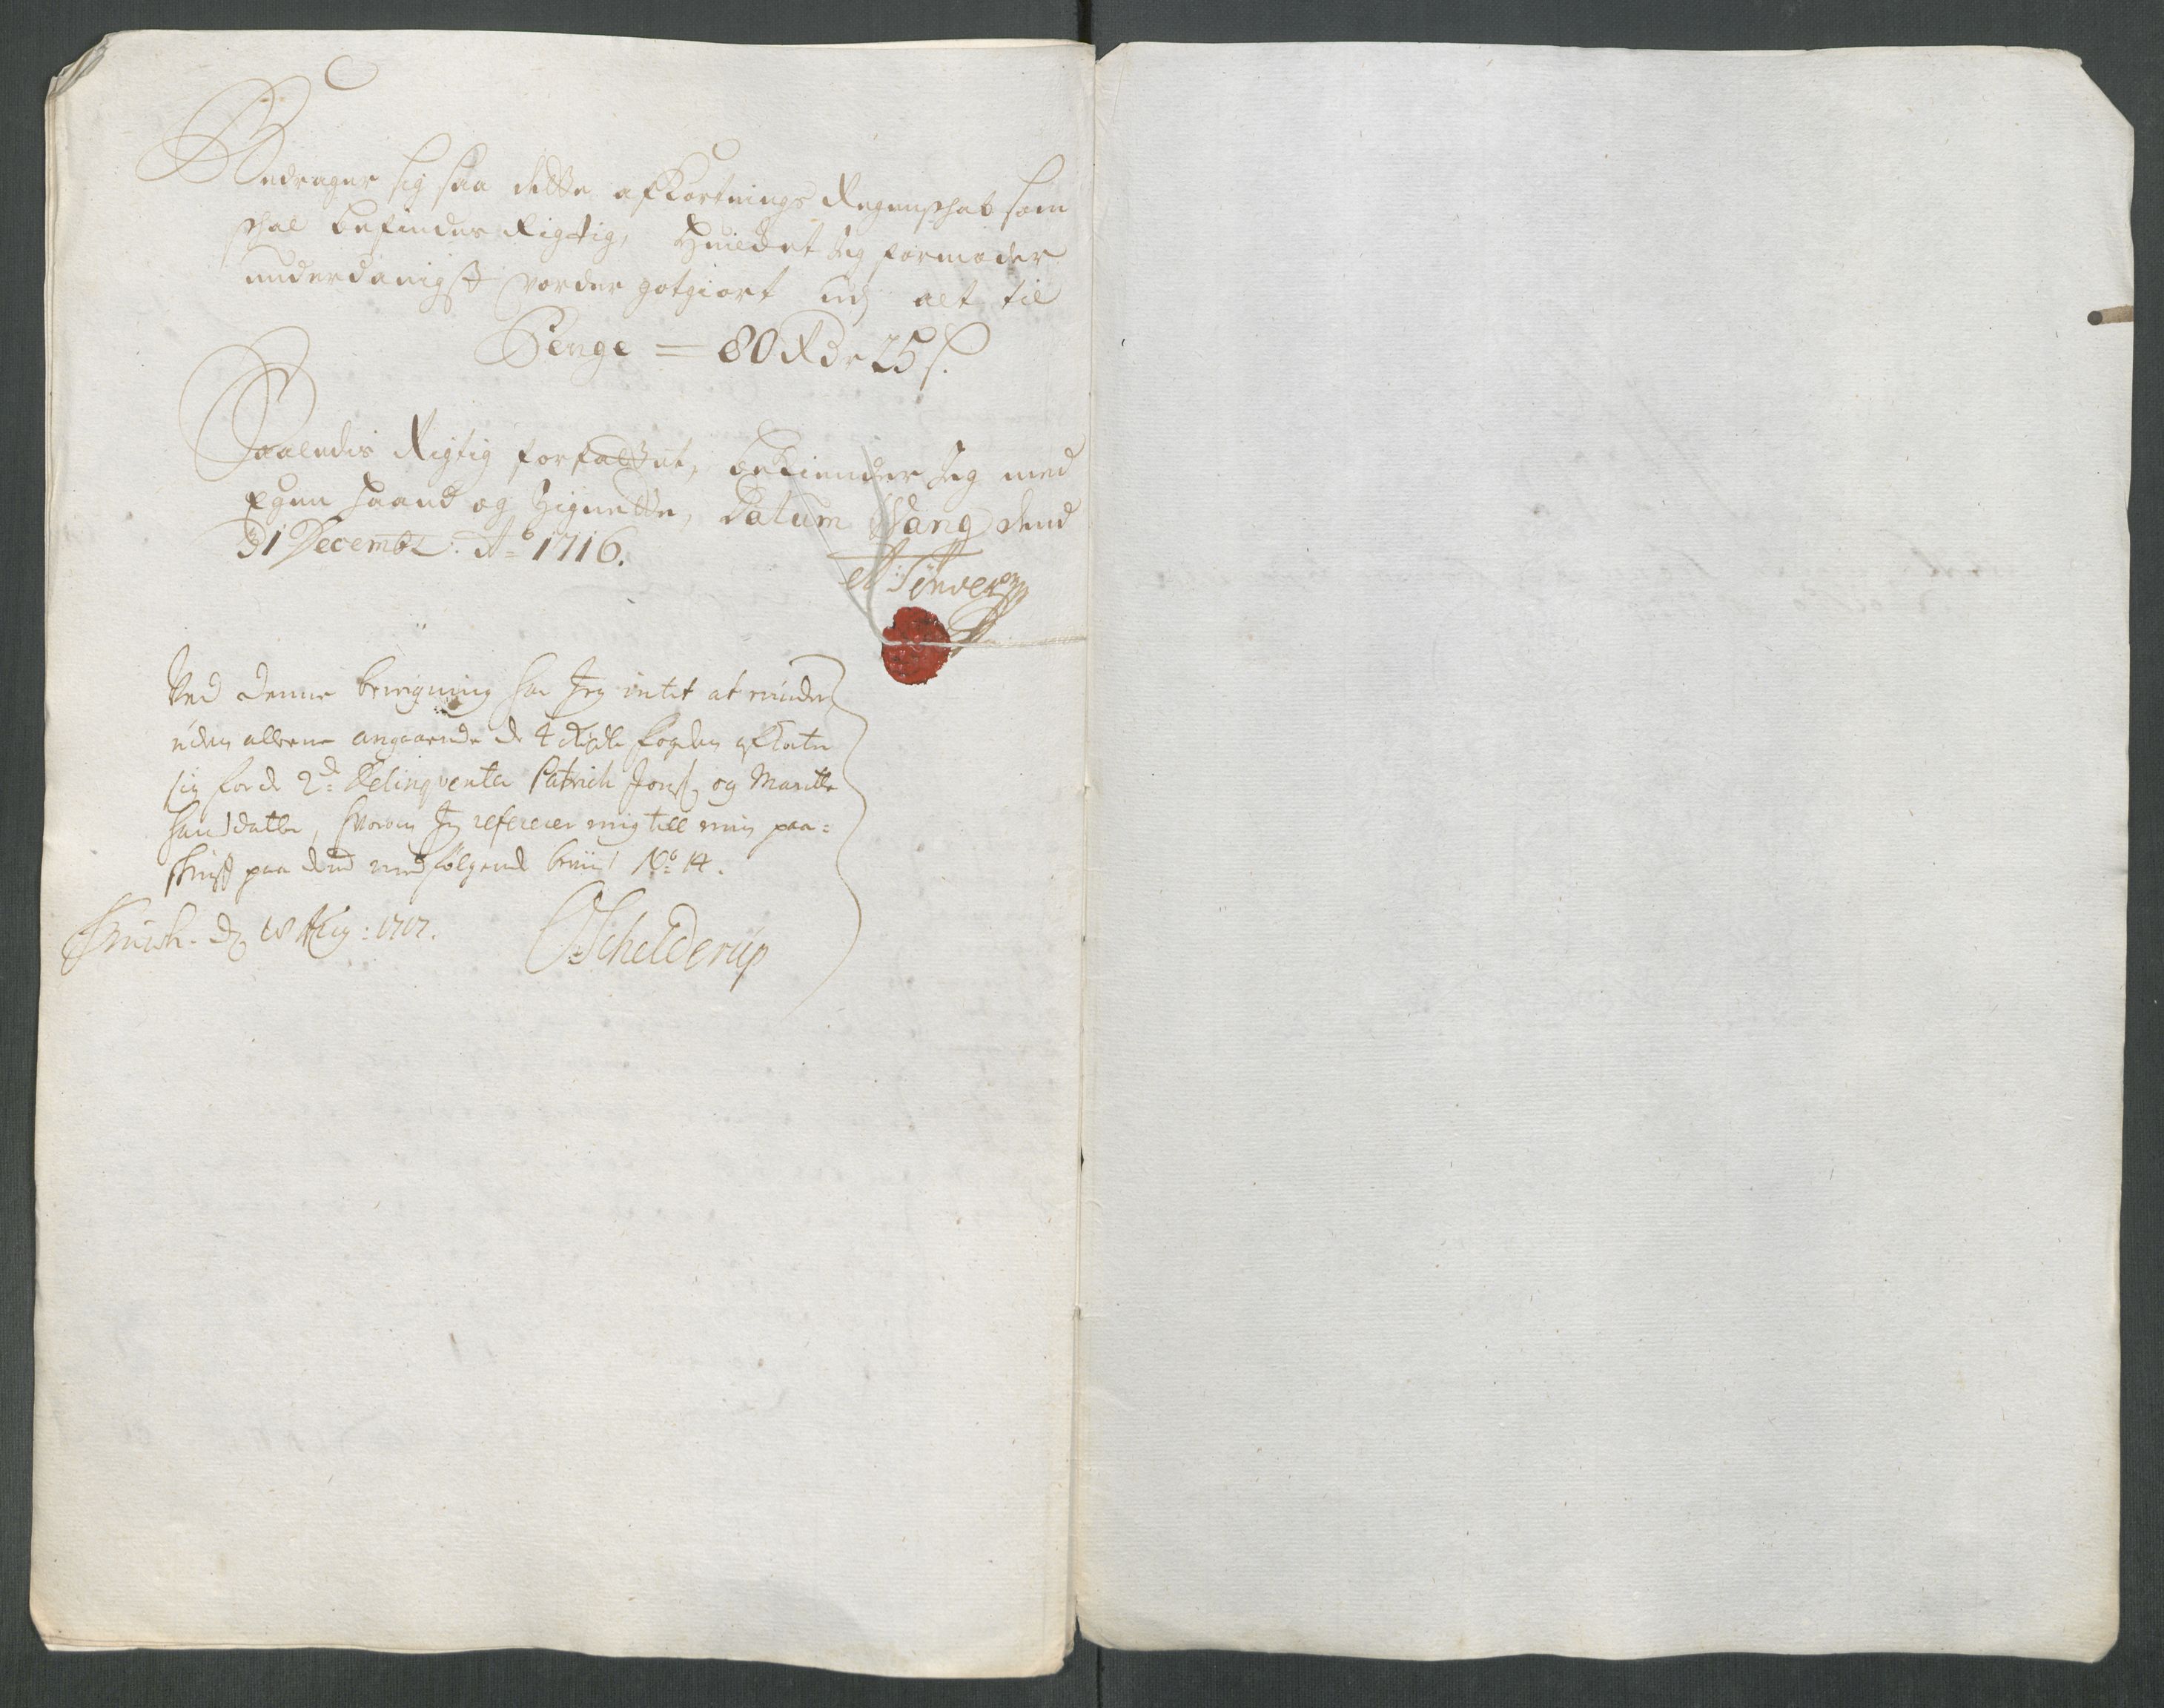 Bedrager sig saa dette afkortnings Regenschab som
schal befindes Rigtig, Hvilchet Jeg formoder
underdanigst vorder gotgiort udj alt til
Penge = 80 Rdr 25 s.
Saaledis Rigtig forfattet, bekiender Jeg med
Egen haand og Zignette, Datum Wang dend
31 Decembr: Ao 1716.
Ved denne beregning har Jeg intet at minde
uden allene angaaende de 4 Rixdr fogden afkorter
sig for de 2de Delinqventer Patrich Jonss: og Maritte
Hansdatter, hvorom Jeg refererer mig till min paa=
schrifft paa dend medfølgende beviis No 14.
d 18 Aug: 1717. Schelderup